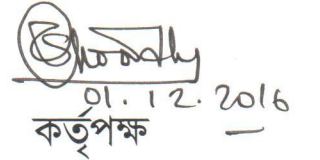 01.12.2016
কর্তৃপক্ষ